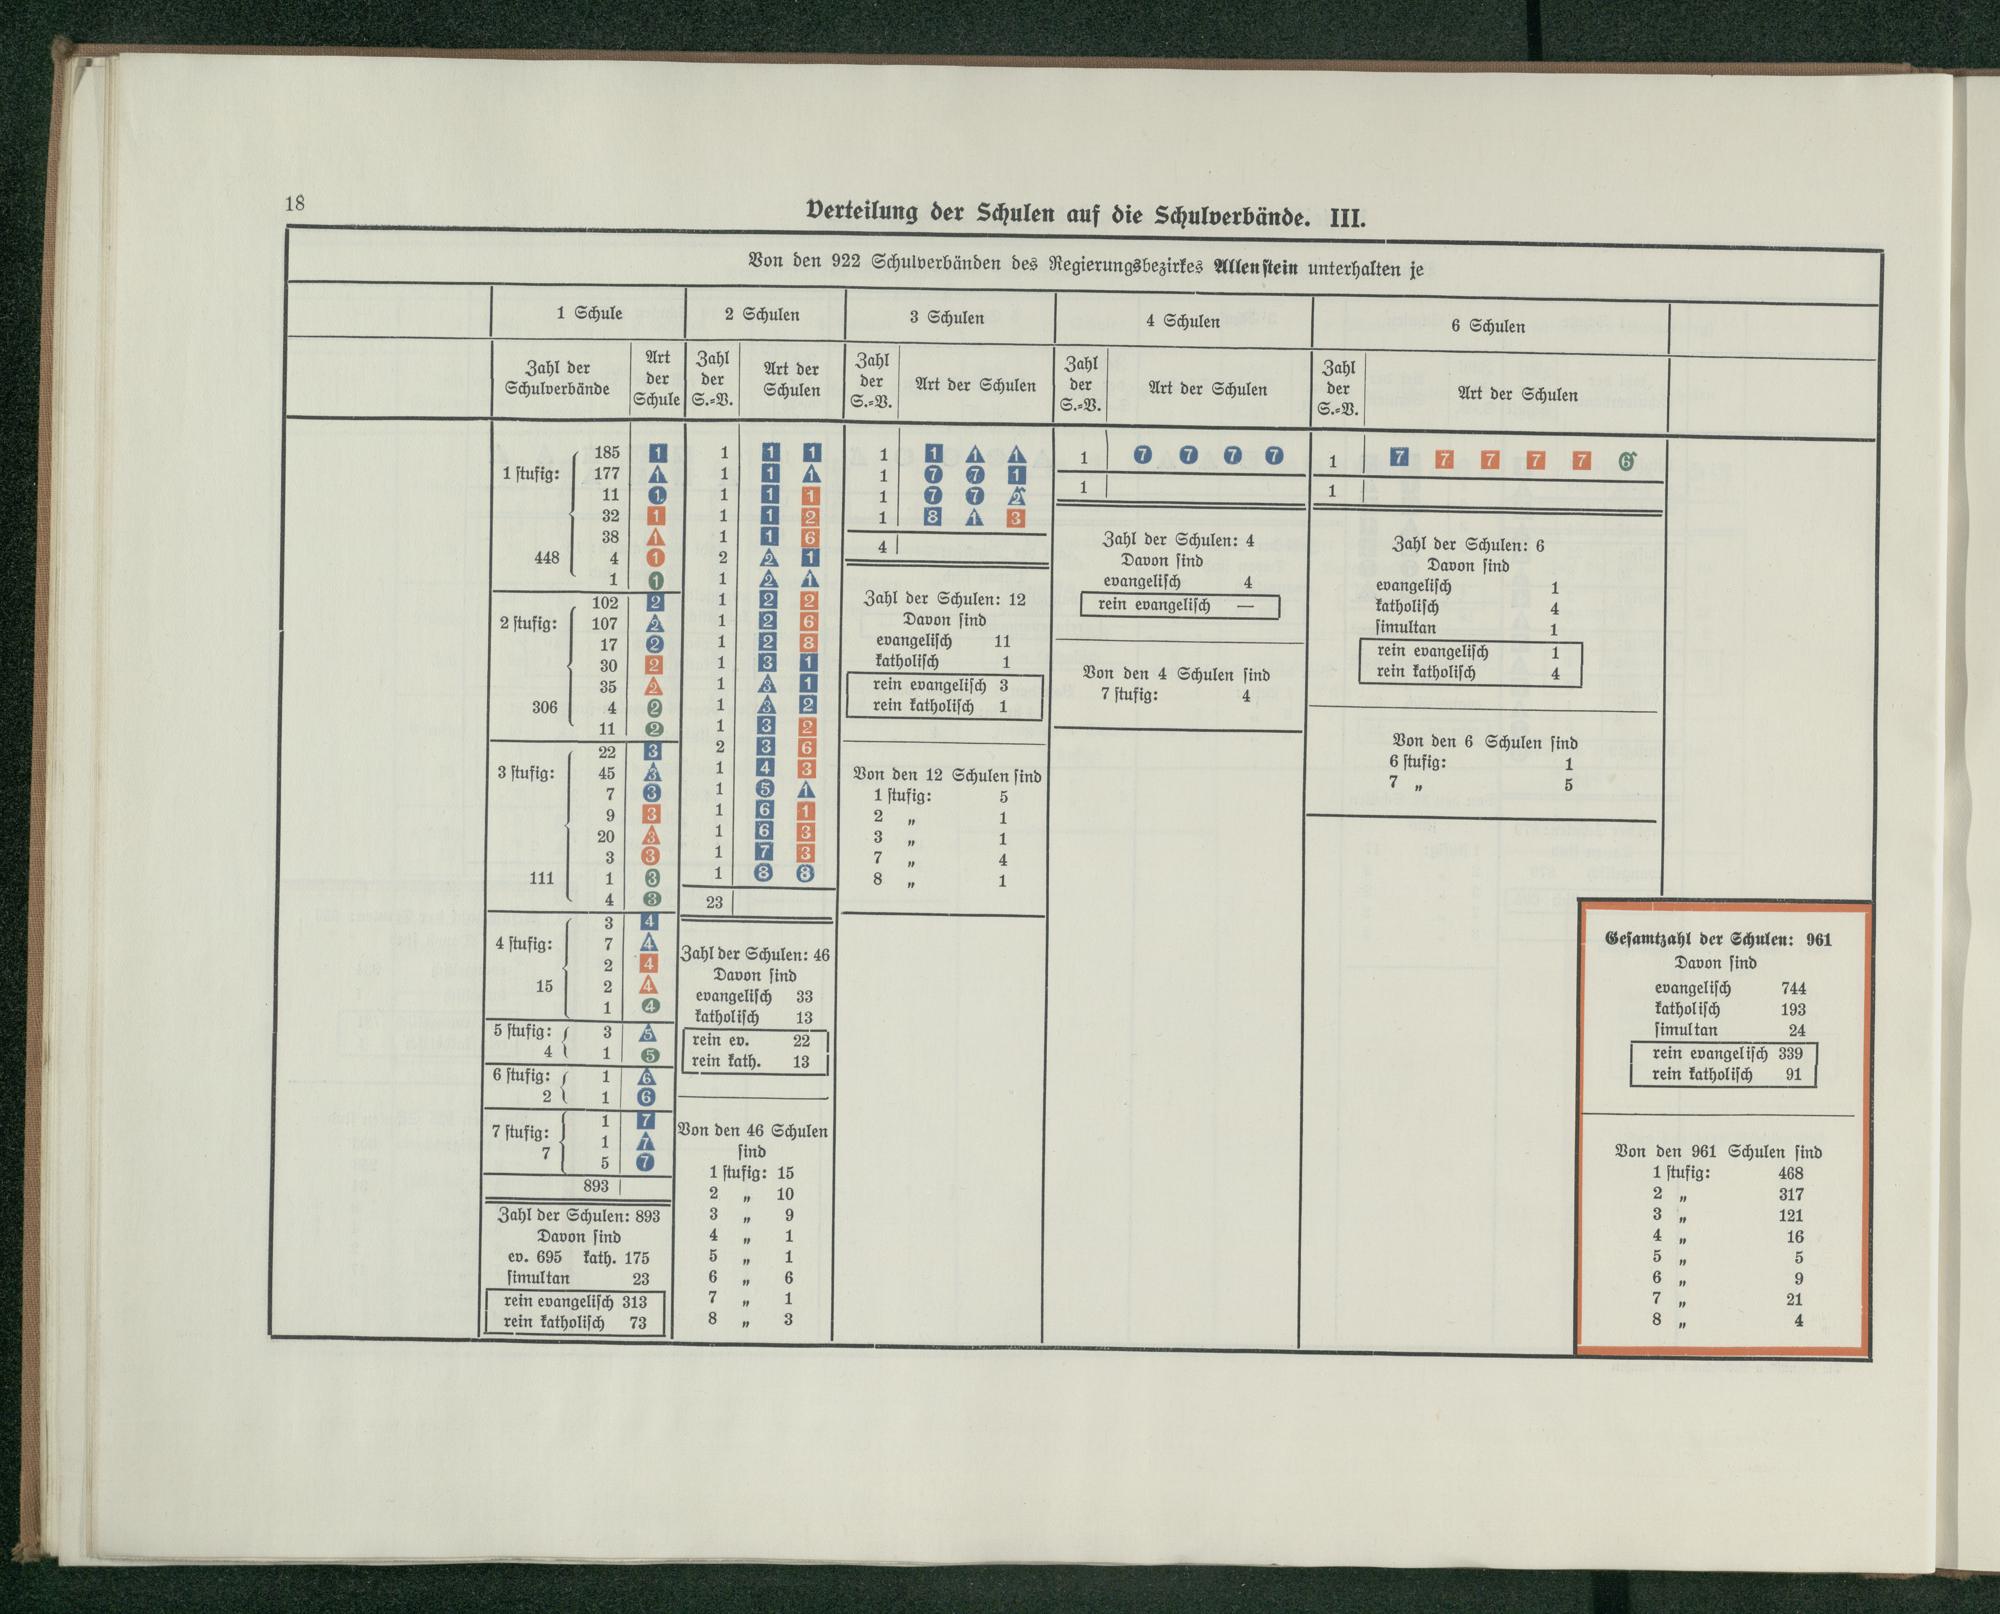 18
Verteilung der Schulen auf die Schulverbände. III.
Von den 922 Schulverbänden des Regierungsbezirkes Allenstein unterhalten je
1 Schule
2 Schulen
3 Schulen
4 Schulen
6 Schulen
Zahl der Schulverbände
Art der Schule
Zahl der S.=V.
Art der Schulen
Zahl der S.=V.
Art der Schulen
Zahl der S.=V.
Art der Schulen
Zahl der S.=V.
Art der Schulen
185 1
1 stufig: 177 1
11 1
32 1
38 1
448 4 1
1 1
102 2
2 stufig: 107 2
17 2
30 2
35 2
306 4 2
11 2
22 3
3 stufig: 45 3
7 3
9 3
20 3
3 3
111 1 3
4 3
3 4
4 stufig: 7 4
2 4
15 2 4
1 4
5 stufig: 3 5
4 1 5
6 stufig: 1 6
2 1 6
1 7
7 stufig: 1 7
7 5 7
893
Zahl der Schulen: 893
Davon sind
ev. 695 kath. 175
simultan 23
rein evangelisch 313
rein katholisch 73
1 1 1
1 1 1
1 1 1
1 1 2
1 1 6
2 2 1
1 2 1
1 2 2
1 2 6
1 2 8
1 3 1
1 3 1
1 3 2
1 3 2
2 3 6
1 4 3
1 5 1
1 6 1
1 6 3
1 7 3
1 8 8
23
Zahl der Schulen: 46
Davon sind
evangelisch 33
katholisch 13
rein ev. 22
rein kath. 13
Von den 46 Schulen
sind
1 stufig: 15
2 „ 10
3 „ 9
4 „ 1
5 „ 1
6 „ 6
7 „ 1
8 „ 3
1 1 1 1
1 7 7 1
1 7 7 2
1 8 1 3
4
Zahl der Schulen: 12
Davon sind
evangelisch 11
katholisch 1
rein evangelisch 3
rein katholisch 1
Von den 12 Schulen sind
1 stufig: 5
2 „ 1
3 „ 1
7 „ 4
8 „ 1
1 7 7 7 7
1
Zahl der Schulen: 4
Davon sind
evangelisch 4
rein evangelisch —
Von den 4 Schulen sind
7 stufig: 4
1 7 7 7 7 7 6
1
Zahl der Schulen: 6
Davon sind
evangelisch 1
katholisch 4
simultan 1
rein evangelisch 1
rein katholisch 4
Von den 6 Schulen sind
6 stufig: 1
7 „ 5
Gesamtzahl der Schulen: 961
Davon sind
evangelisch 744
katholisch 193
simultan 24
rein evangelisch 339
rein katholisch 91
Von den 961 Schulen sind
1 stufig: 468
2 „ 317
3 „ 121
4 „ 16
5 „ 5
6 „ 9
7 „ 21
8 „ 4